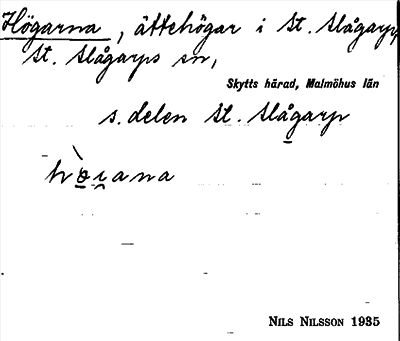 Högarna, ättehögar i St. Slågarp,
St. Slågarps sn,
Skytts härad, Malmöhus län
s. delen St. Slågarp
NILS NILSSON 1935